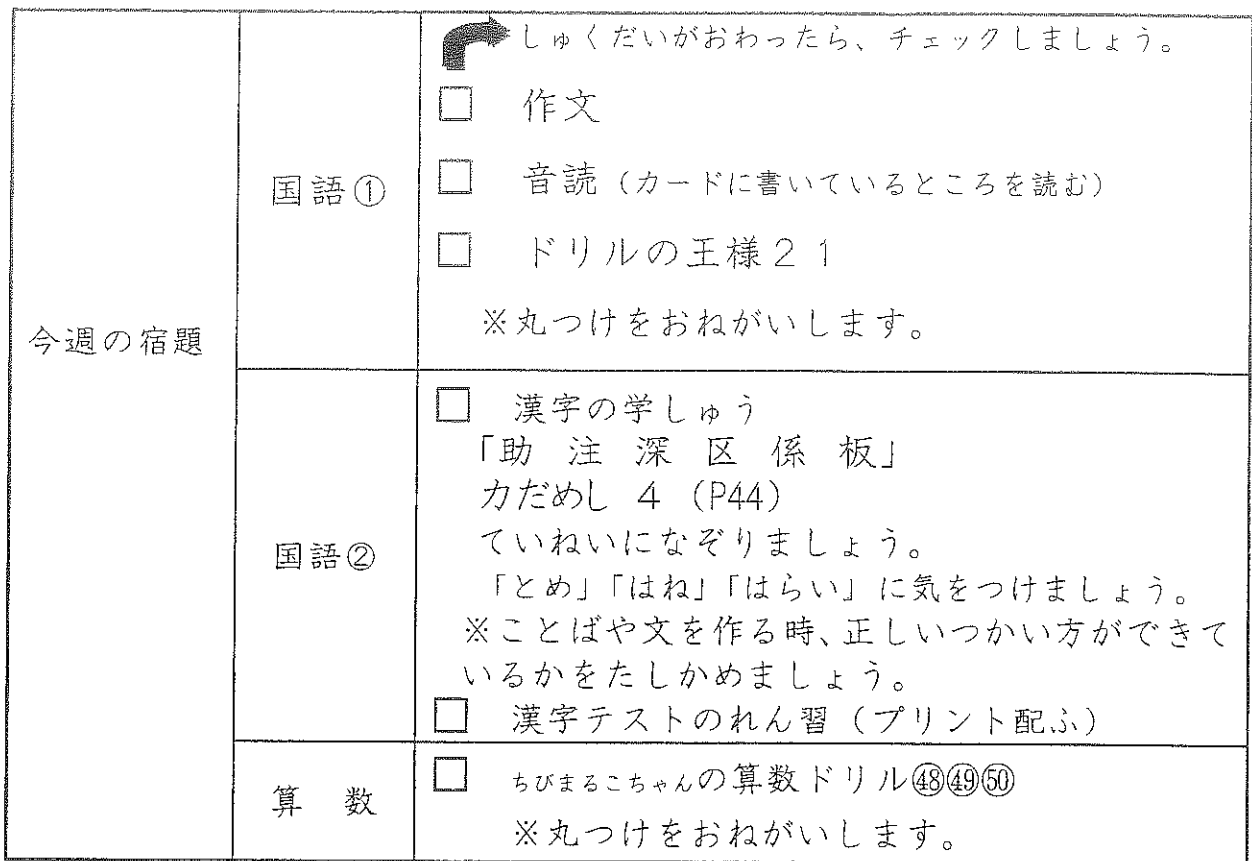 今週の宿題
国語①
しゅくだいがおわったら、チェックしましょう。
□ 作文
□ 音読(カードに書いているところを読む)
□ ドリルの王様21
※丸つけをおねがいします。
国語②
□ 漢字の学しゅう
「助 注 深 区 係 板」
力だめし 4 (P44)
ていねいになぞりましょう。
「とめ」「はね」「はらい」に気をつけましょう。
※ことばや文を作る時、正しいつかい方ができて
いるかをたしかめましょう。
□ 漢字テストのれん習(プリント配ふ)
算 数
□ ちびまるこちゃんの算数ドリル㊽㊾㊿
※丸つけをおねがいします。